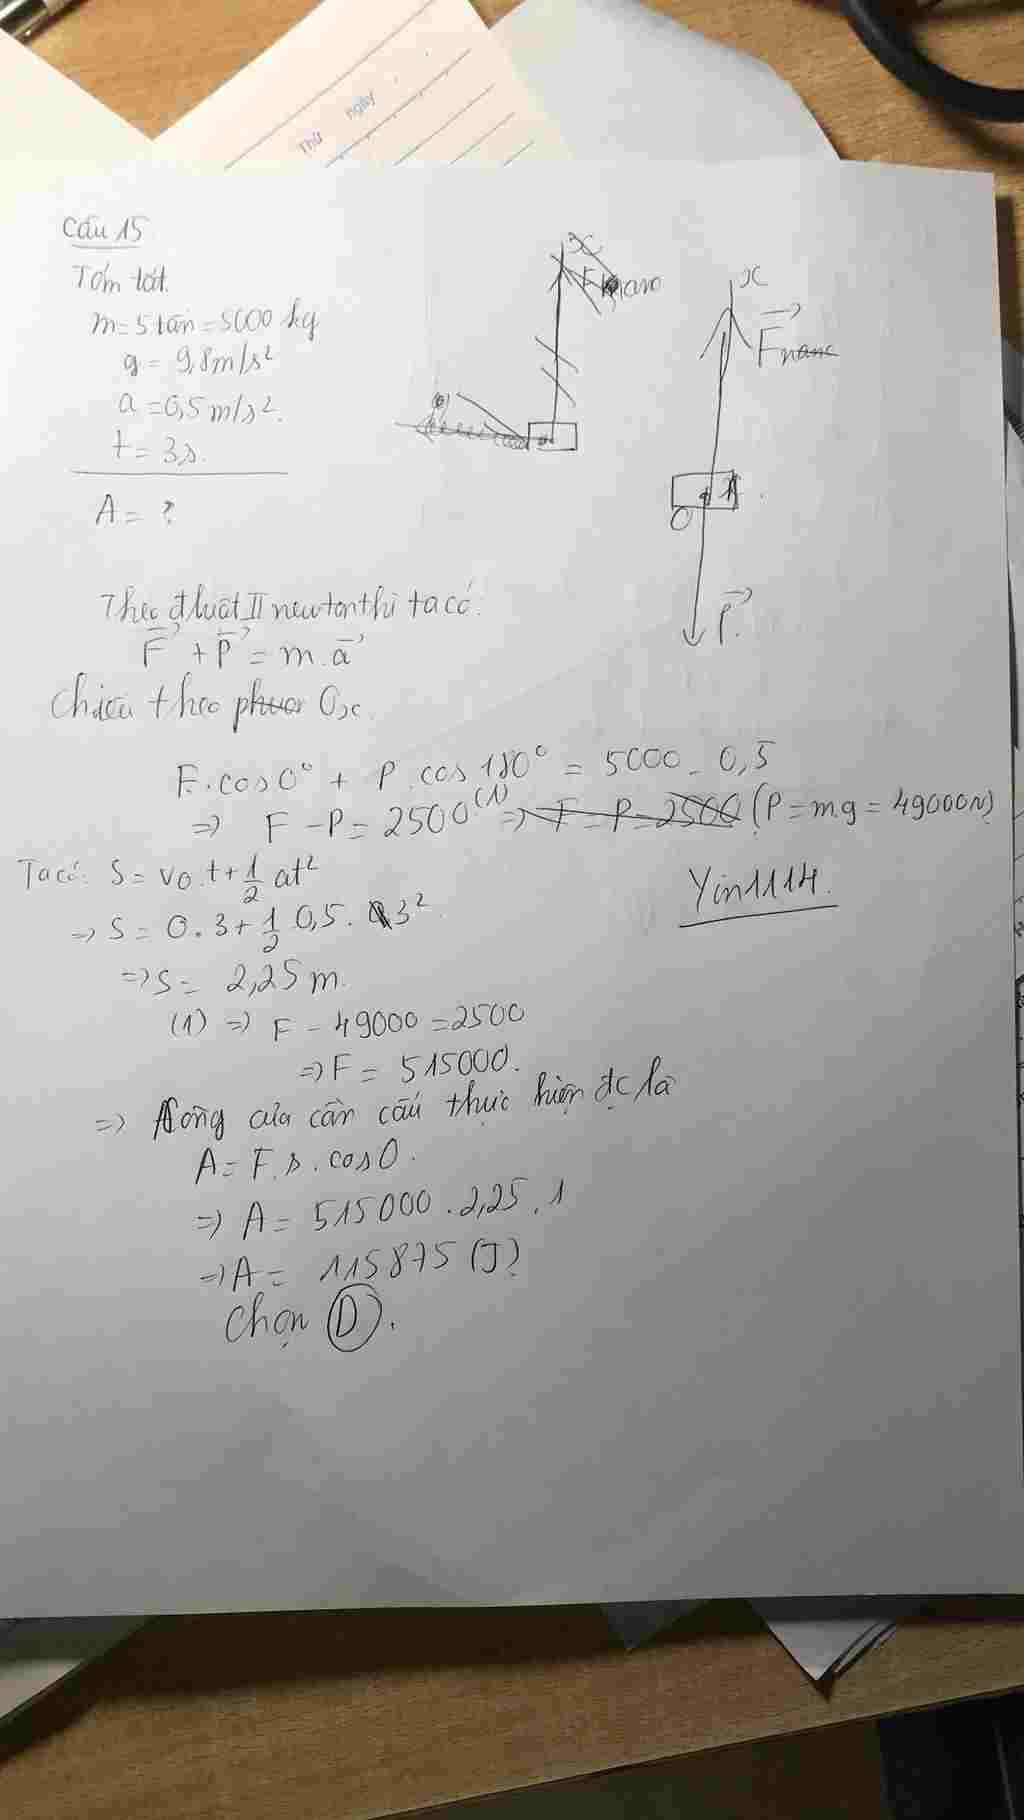 Thứ ngày
Câu 15
Tóm tắt.
m = 5 tấn = 5000 kg
g = 9,8m/s²
a = 0,5m/s².
t = 3s.
A = ?
x
x
F
O
P.
Theo đluật II newton thì ta có:
F + P = m.a
Chiếu theo Ox.
F.cos0° + P.cos180° = 5000.0,5
=> F - P = 2500 (1) => F - P = 2500 (P = m.g = 49000N)
Ta có: S = v0.t + 1/2 at²
=> S = 0.3 + 1/2 0,5. 3²
=> S = 2,25 m.
Yin1114.
(1) => F - 49000 = 2500
=> F = 515000.
=> Công của cần cẩu thực hiện đc là
A = F.s.cos0.
=> A = 515000.2,25.1
=> A = 115875 (J)
Chọn D.